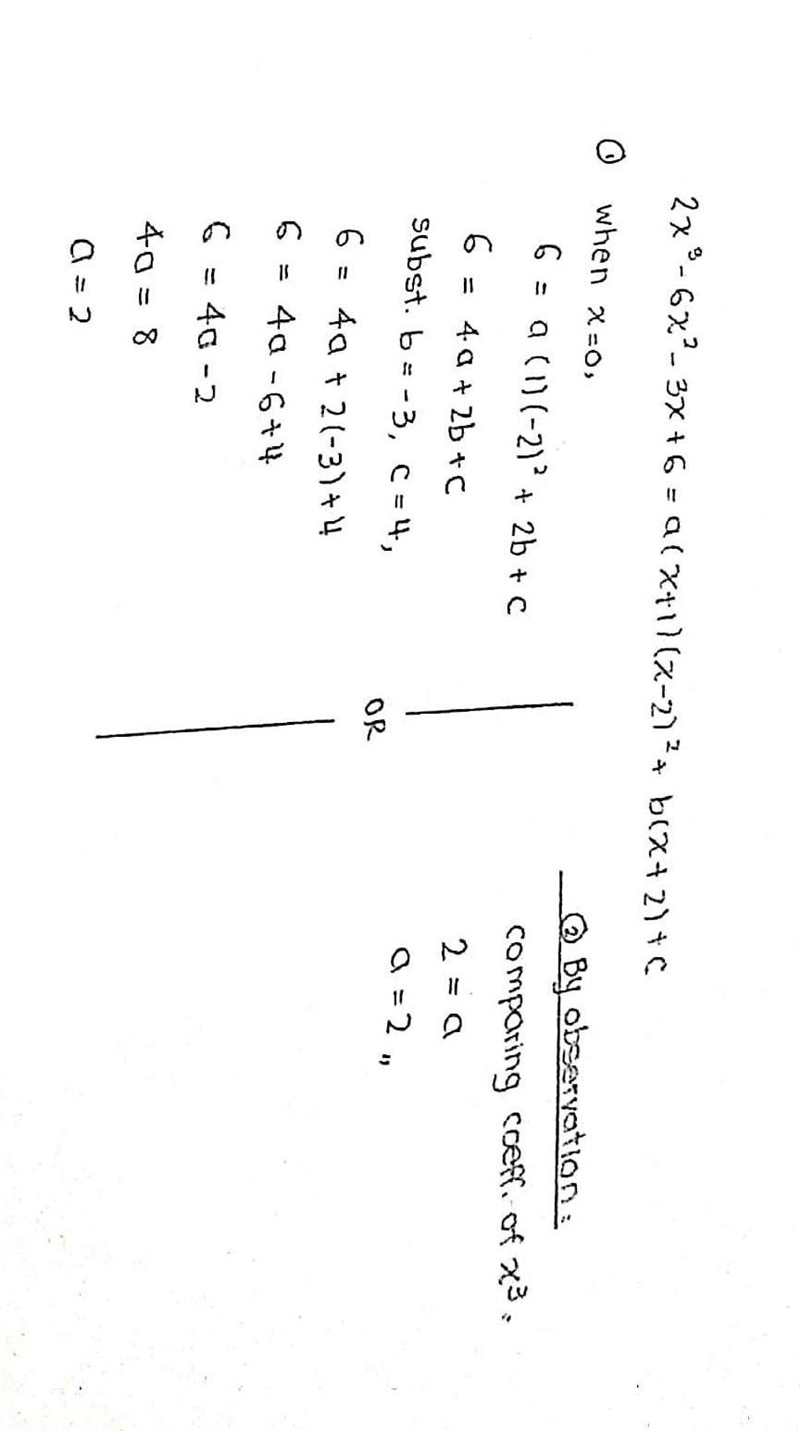 2x³ - 6x² - 3x + 6 = a(x+1)(x-2)² + b(x+2) + c
① when x=0,
6 = a(1)(-2)² + 2b + c
6 = 4a + 2b + c
subst. b = -3, c = 4,
6 = 4a + 2(-3) + 4
6 = 4a - 6 + 4
6 = 4a - 2
4a = 8
a = 2
OR
② By observation:
comparing coeff. of x³:
2 = a
a = 2 „